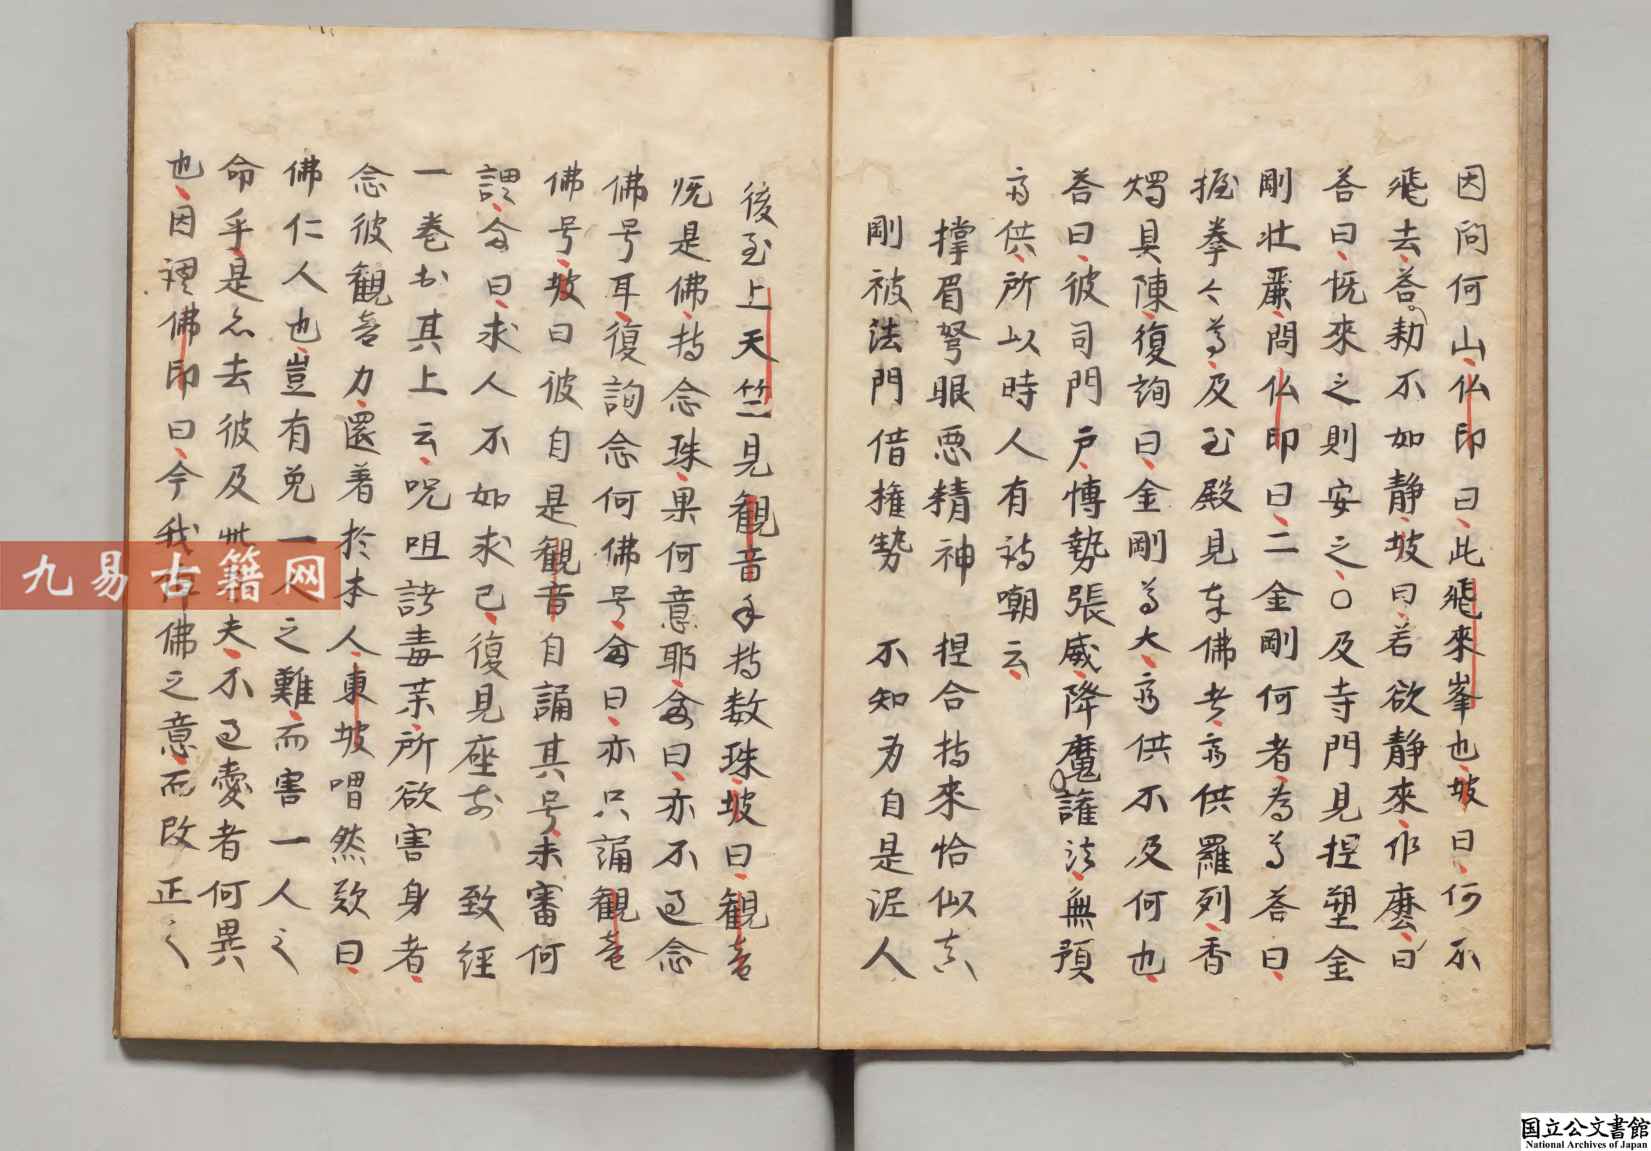 因問何山仏印曰此飛來峯也坡曰何不
飛去答勅不如静坡曰若欲静來作麼曰
答曰既來之則安之〇及寺門見捏塑金
剛壮麗問仏印曰二金剛何者為尊答曰
握拳々尊及至殿見奉佛者斎供羅列香
燭具陳復詢曰金剛尊大斎供不及何也
答曰彼司門戸慱勢張威降魔護法無預
斎供所以時人有詩嘲云
撑眉弩眼悪精神　捏合將來恰似真
剛被法門借権勢　不知身自是泥人
後至上天竺見観音手持数珠坡曰観音
既是佛持念珠果何意耶僉曰亦不過念
佛号耳復詢念何佛号僉曰亦只誦観音
佛号坡曰彼自是観音自誦其号未審何
謂僉曰求人不如求己復見座前致經
一巻於其上云呪咀諸毒薬所欲害身者
念彼観音力還着於本人東坡喟然歎曰
佛仁人也豈有免一人之難而害一人之
命乎是亦去彼及此夫不過愛者何異
也因謂佛印曰今我佛之意而改正之
九易古籍网
国立公文書館
National Archives of Japan